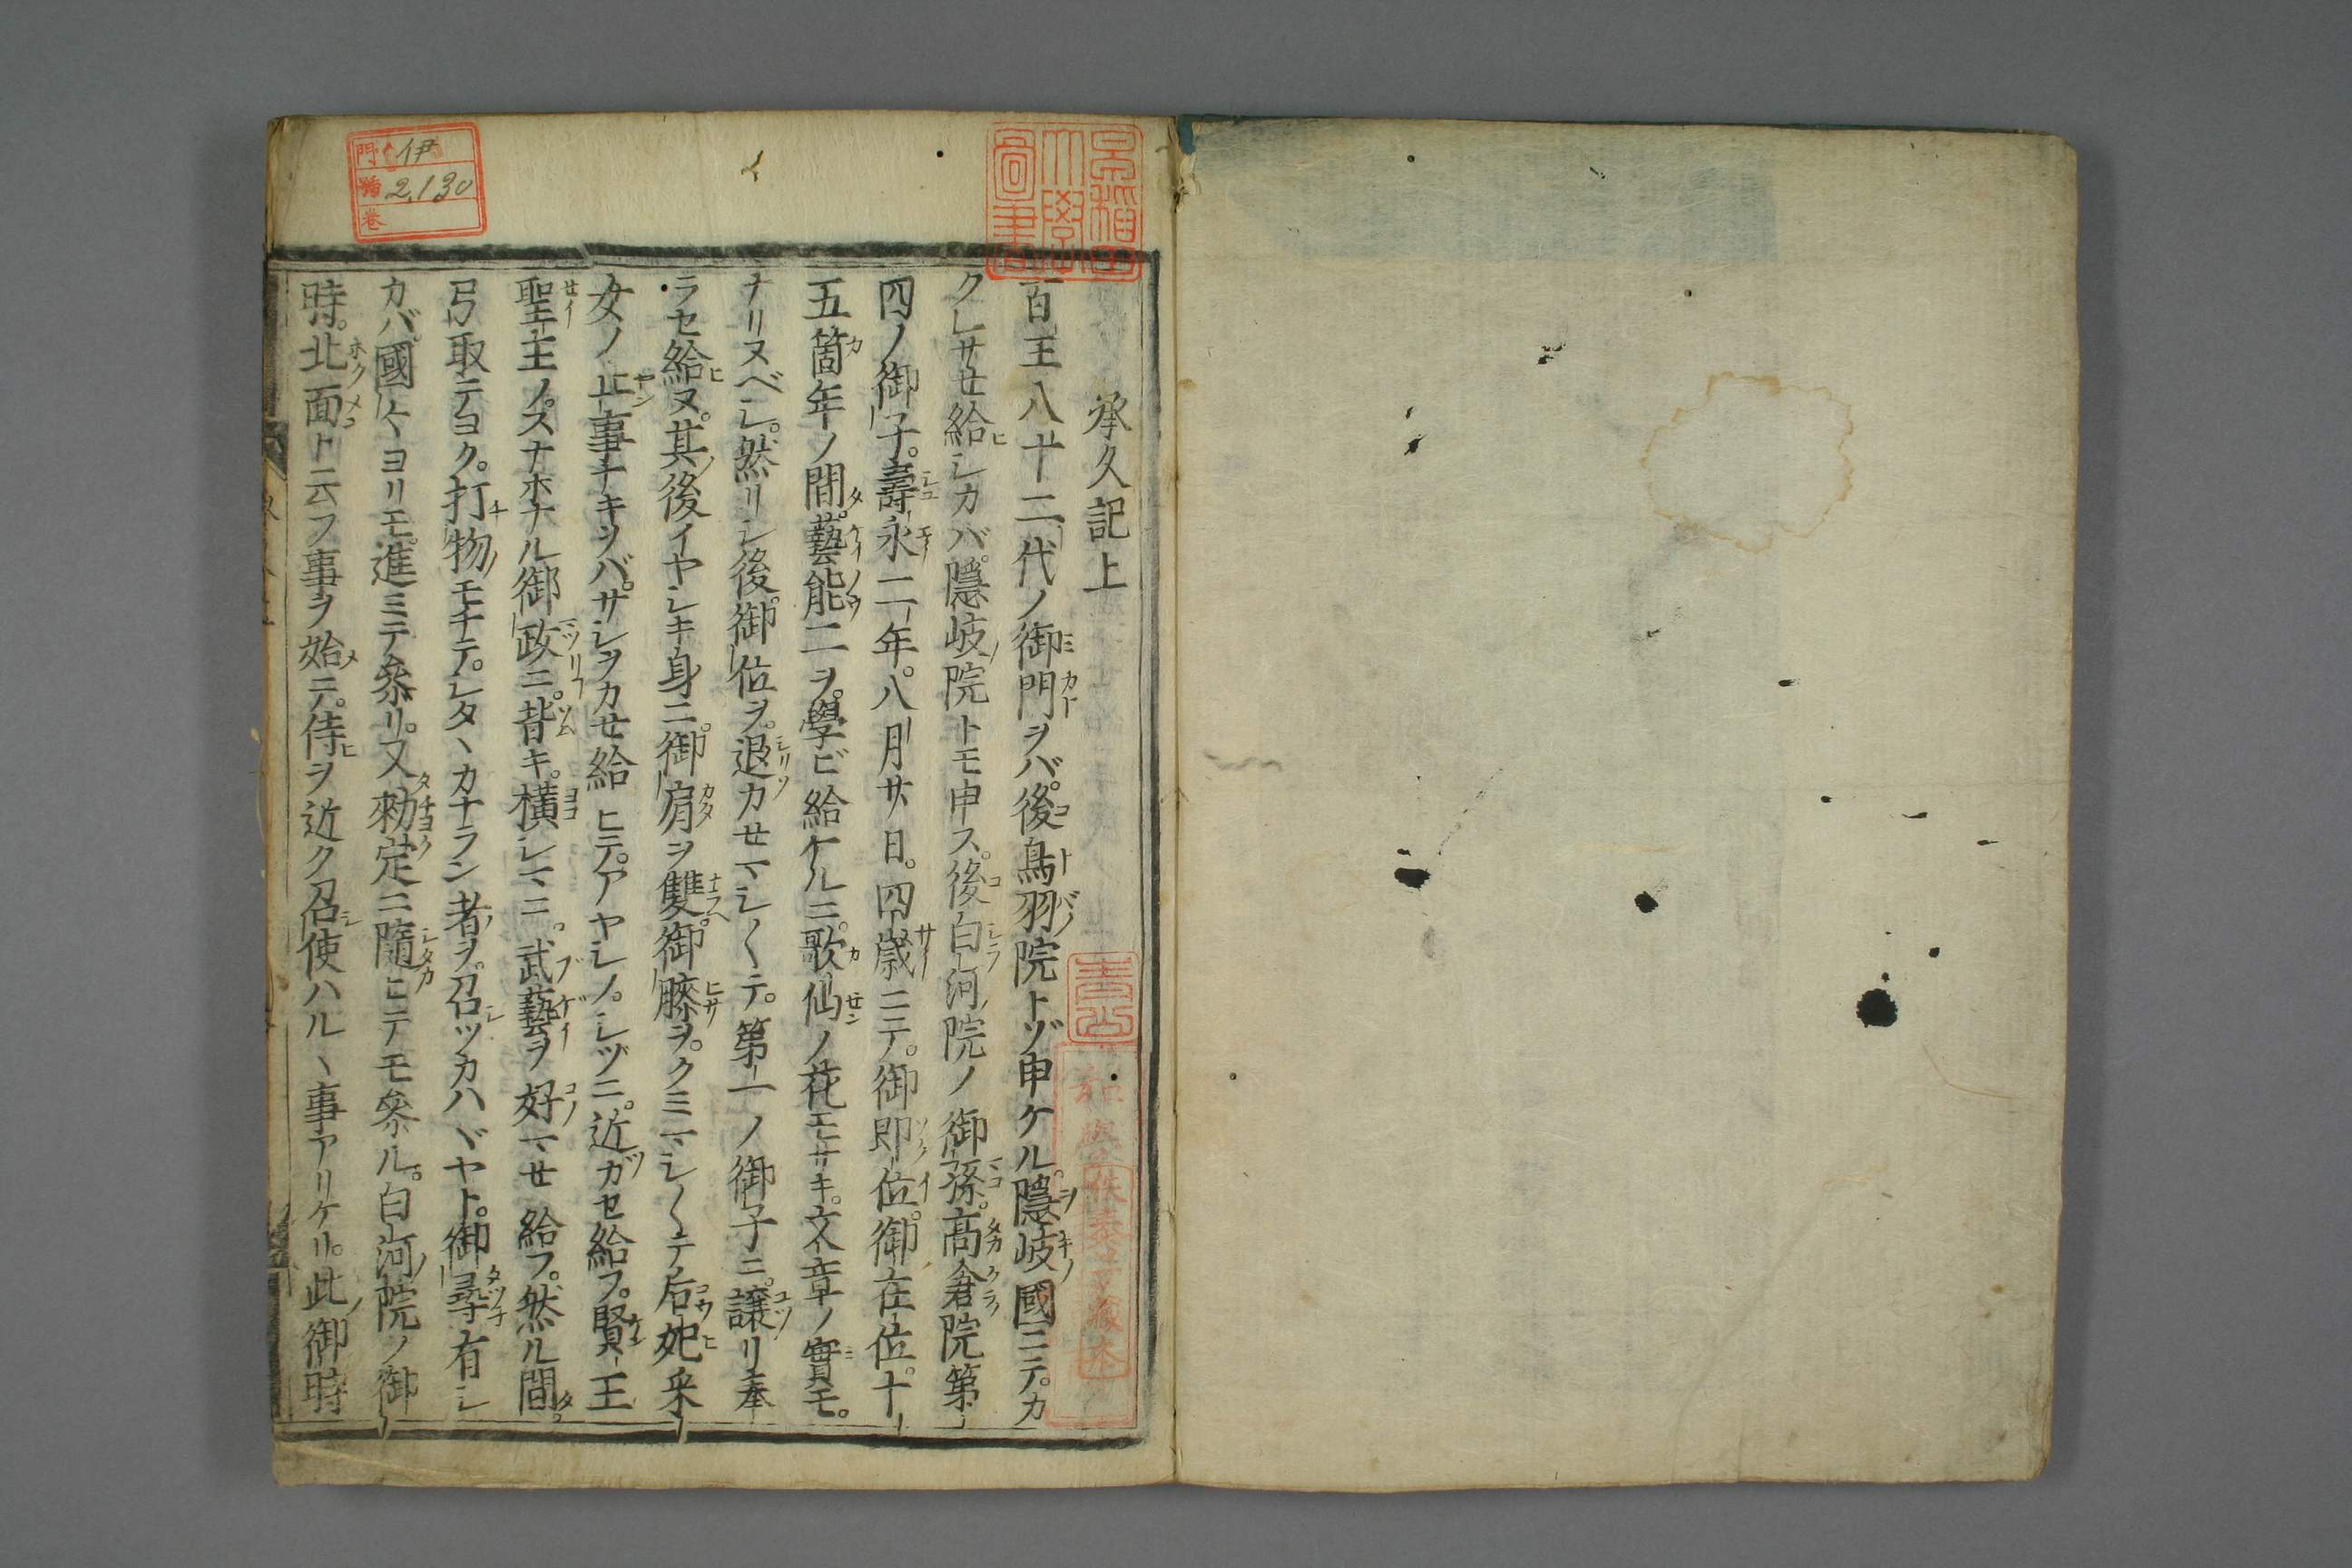 承久記上
百王八十二代ノ御門ヲバ。後鳥羽院トゾ申ケル。隱岐國ニテ。カ
クレサせ給シカバ。隱岐院トモ申ス。後白河院ノ御孫。高倉院第
四ノ御子。壽永二年。八月廿日。四歳ニテ。御即位。御在位。十
五箇年ノ間。藝能二ヲ。學ビ給ケルニ。歌仙ノ花モサキ。文章ノ實モ。
ナリヌベシ。然リシ後。御位ヲ。退カせマシ〱テ。第一ノ御子ニ。讓リ奉
ラセ給ヌ。其後イヤシキ身ニ。御肩ヲ雙。御膝ヲ。クミマシ〱テ后妃采
女ノ止事ナキヲバ。サシヲカせ給ヒテ。アヤシノ。シヅニ。近ガセ給フ。賢王
聖主ノ。スナホナル御政ニ。背キ。横シマニ。武藝ヲ好マせ給フ。然ル間。
弓取テヨク。打物モチテ。シタヽカナラン者ヲ。召ツカハヾヤト。御尋有シ
カバ。國〻ヨリモ。進ミテ參リ。又勅定ニ隨ヒテモ參ル。白河院ノ御
時。北面ト云フ事ヲ始テ。侍ヲ近ク召使ハルヽ事アリケリ。此御時
早稻田大學圖書
門 伊
號 2,130
卷